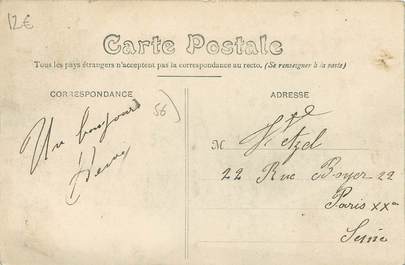 12€
Carte Postale
Tous les pays étrangers n'acceptent pas la correspondance au recto. (Se renseigner à la poste)
CORRESPONDANCE
Un bonjour
56
ADRESSE
M
22 Rue Boyer 22
Paris XXe
Seine